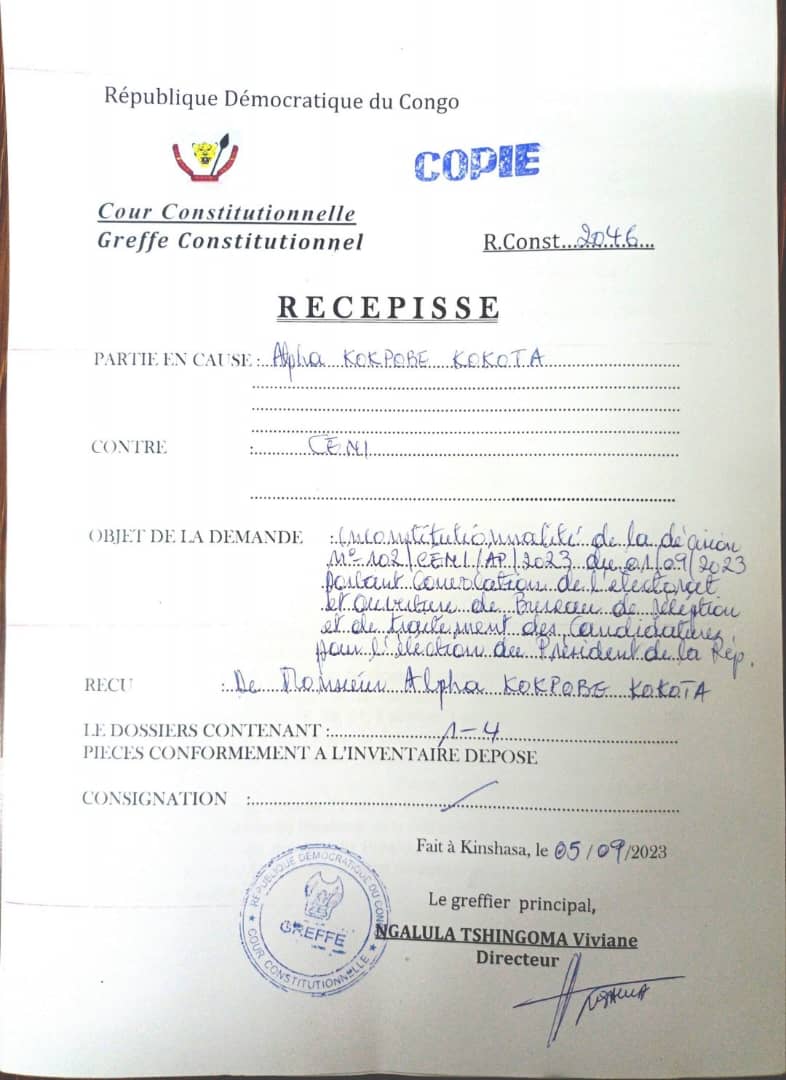 République Démocratique du Congo
COPIE
Cour Constitutionnelle
Greffe Constitutionnel
R.Const...2046...
RECEPISSE
PARTIE EN CAUSE : Alpha KOKPOBE KOKOTA
CONTRE : CENI
OBJET DE LA DEMANDE : Inconstitutionnalité de la décision
N° 102/CENI/AP/2023 du 01/09/2023
portant Convocation de l'électorat
et Ouverture de Bureau de réception
et de traitement des Candidatures
pour l'élection du Président de la Rép.
RECU : De Monsieur Alpha KOKPOBE KOKOTA
LE DOSSIERS CONTENANT : 1-4
PIECES CONFORMEMENT A L'INVENTAIRE DEPOSE
CONSIGNATION :
Fait à Kinshasa, le 05/09/2023
Le greffier principal,
NGALULA TSHINGOMA Viviane
Directeur
REPUBLIQUE DEMOCRATIQUE DU CONGO
GREFFE
COUR CONSTITUTIONNELLE